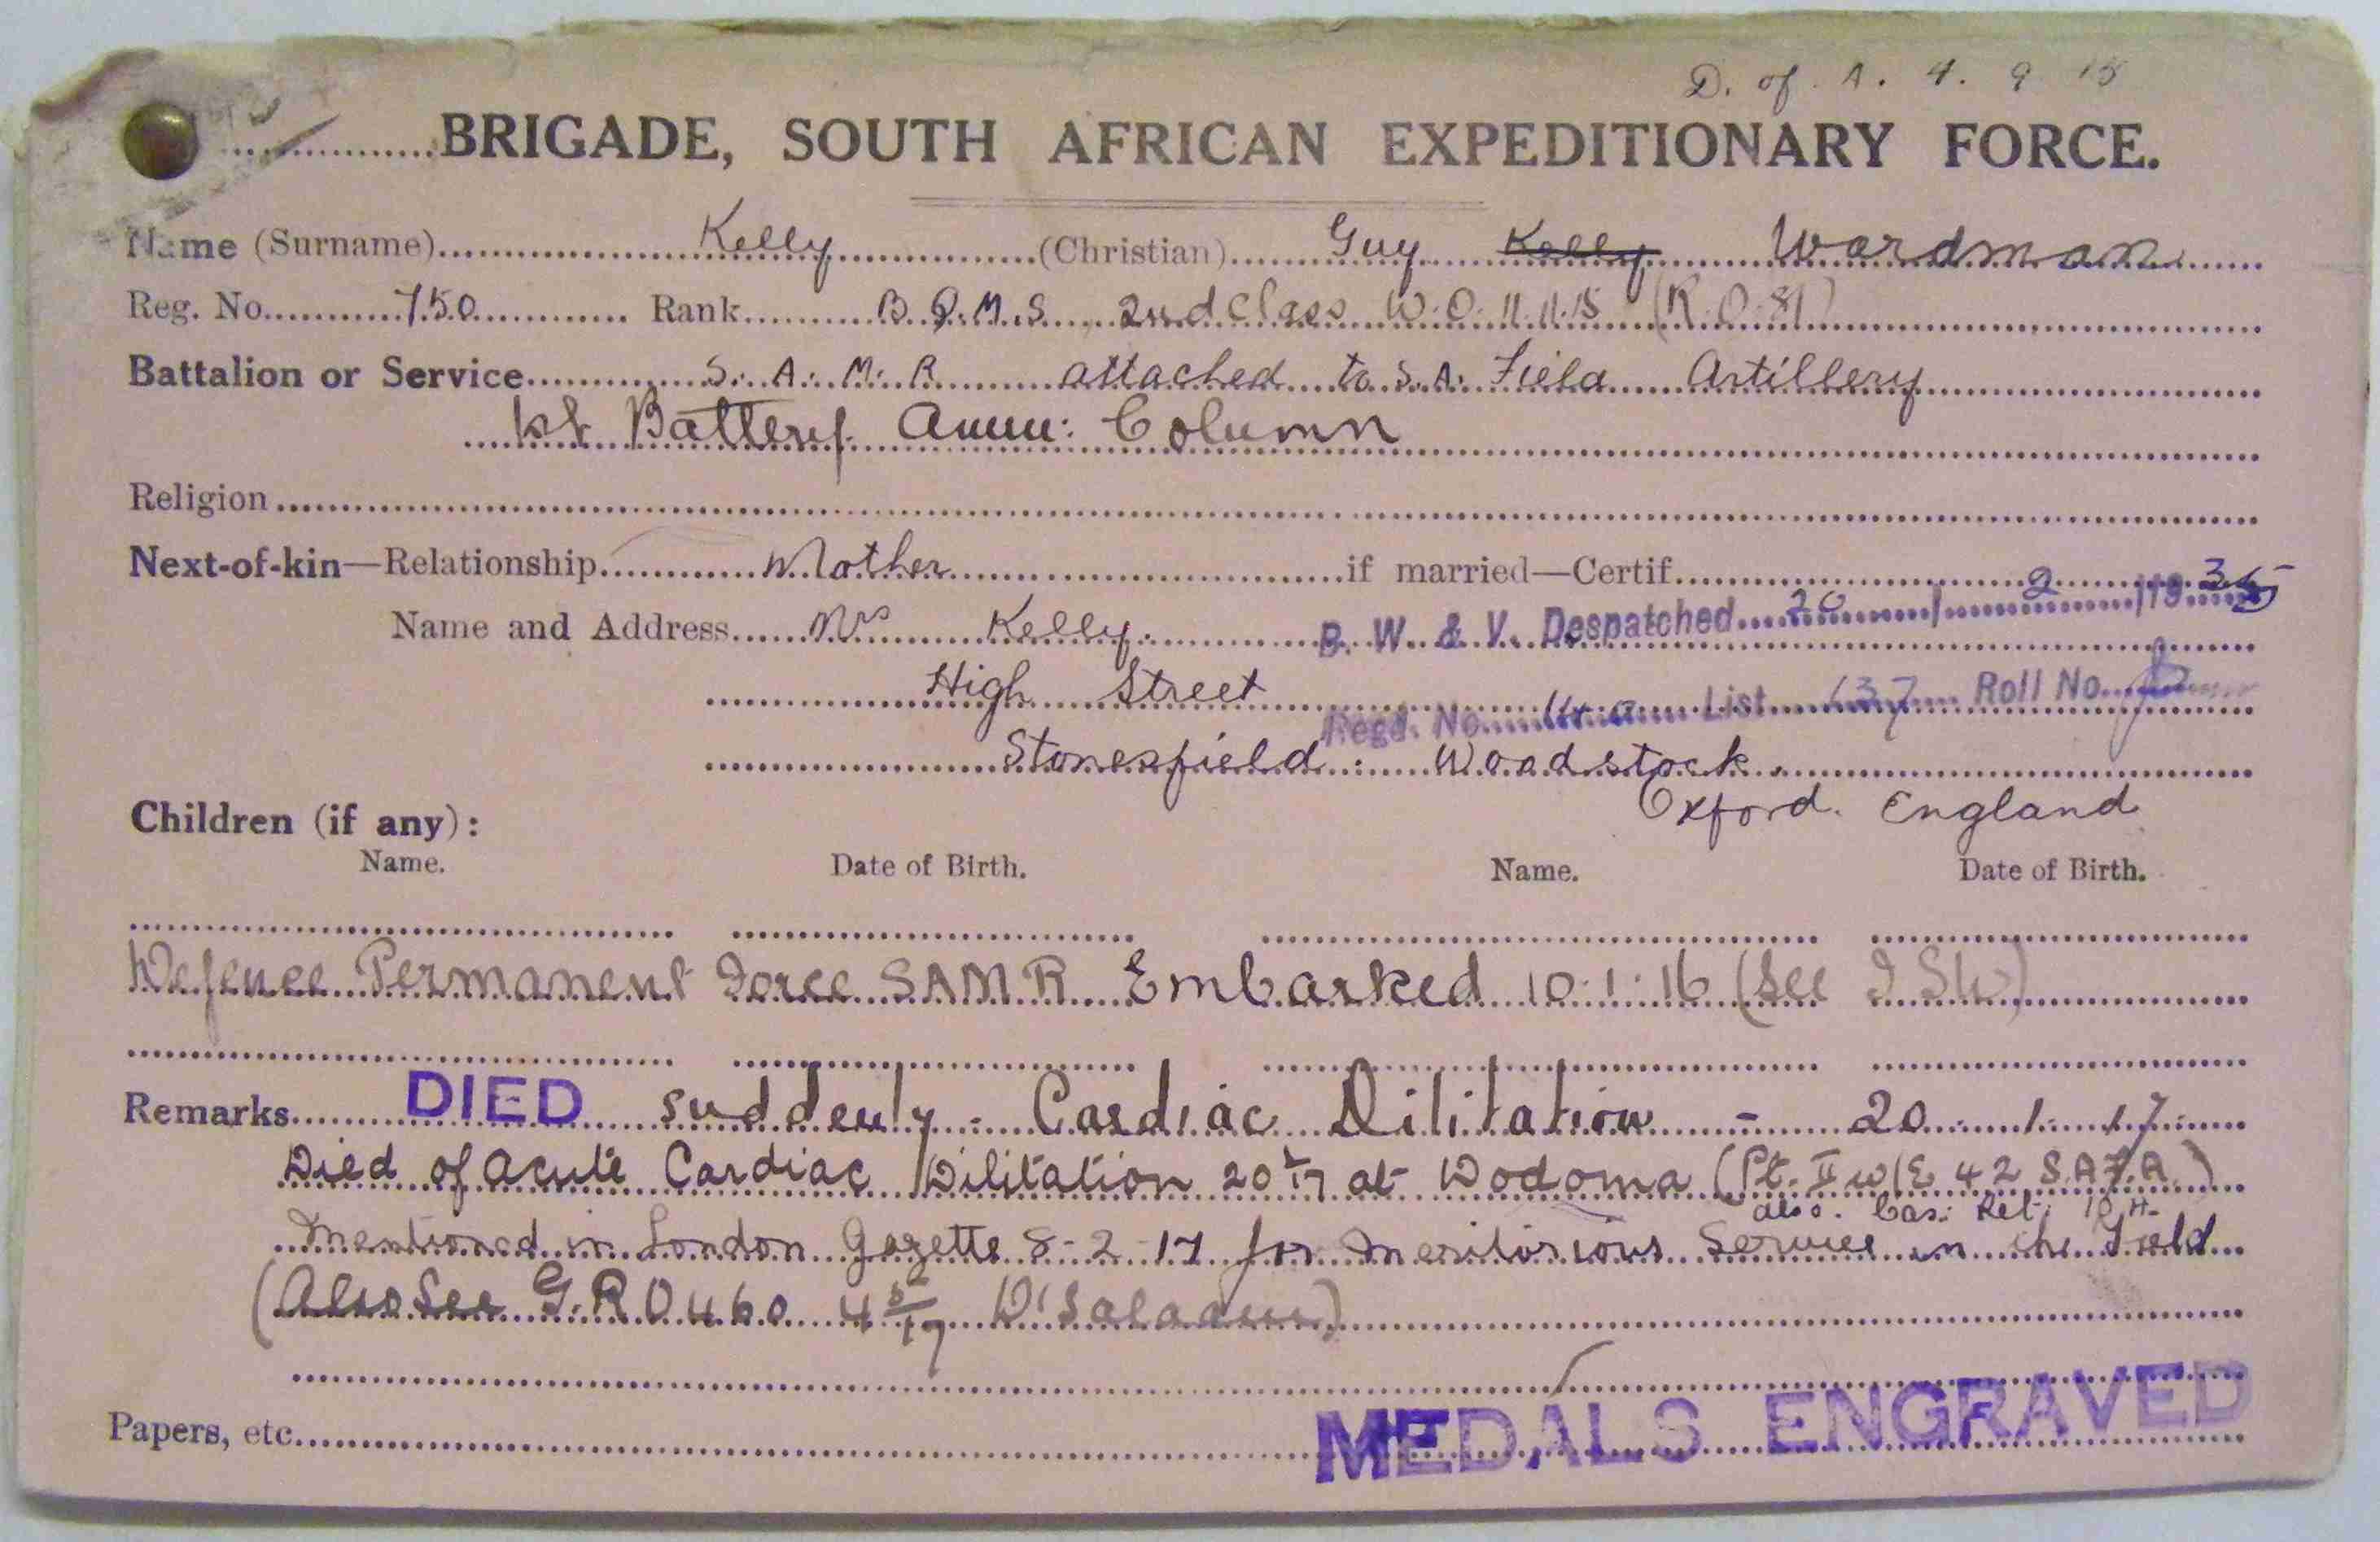 D. of. A. 4. 9 15
BRIGADE, SOUTH AFRICAN EXPEDITIONARY FORCE.
Name (Surname) Kelly (Christian) Guy Kelly Wardman
Reg. No. 750 Rank B.Q.M.S. 2nd Class W.O. 11.11.15 (R.O.81)
Battalion or Service S. A. M. R attached to S.A. Field Artillery
1st Battery Amm: Column
Religion
Next-of-kin—Relationship Mother if married—Certif.
B. W. & V. Despatched 20 / 2 /19 35
Name and Address Mrs Kelly.
High Street
Regd. No. List 137 Roll No.
Stonesfield. Woodstock.
Oxford. England
Children (if any):
Name. Date of Birth. Name. Date of Birth.
Defence Permanent Force SAMR Embarked 10.1.16 (See
Remarks DIED suddenly - Cardiac Dilitation - 20.1.17.
Died of acute Cardiac Dilitation 20 1/17 at Dodoma (Pt. II W/E 42 S.A.F.A.)
also. Cas: Ret:
Mentioned in London Gazette 8-2-17 for Meritorious Service in the Field
(Also See G.R.O 460 4 5/17 D'Salaam)
Papers, etc.
MEDALS ENGRAVED